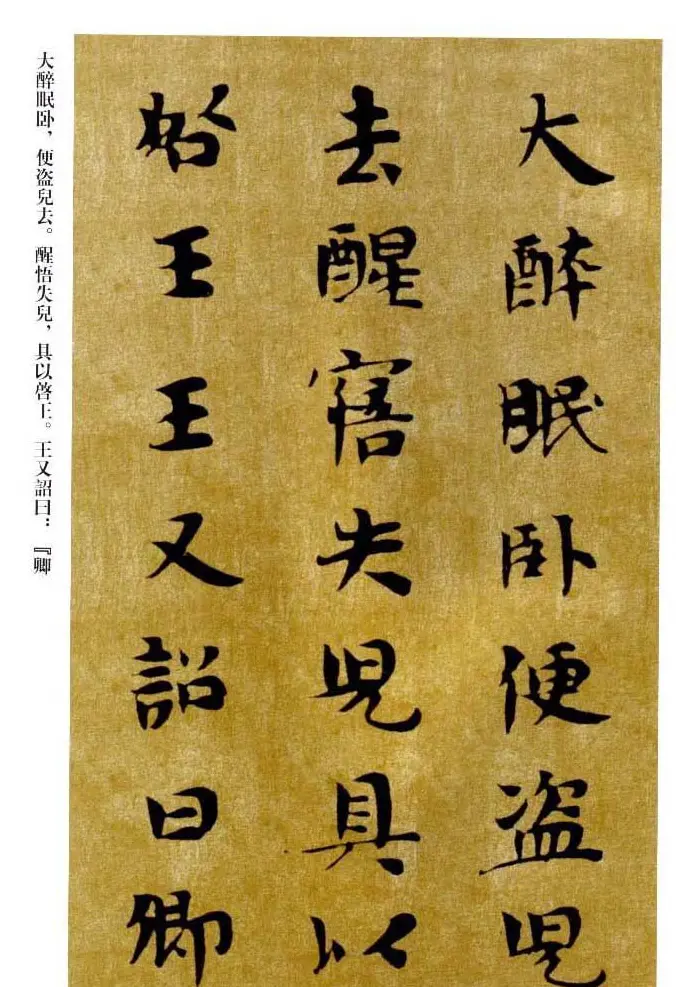 大酔眠卧便盗児
去醒寤失児具以
啓王王又詔曰卿
大醉眠卧，便盗兒去。醒悟失兒，具以啓王。王又詔曰：『卿